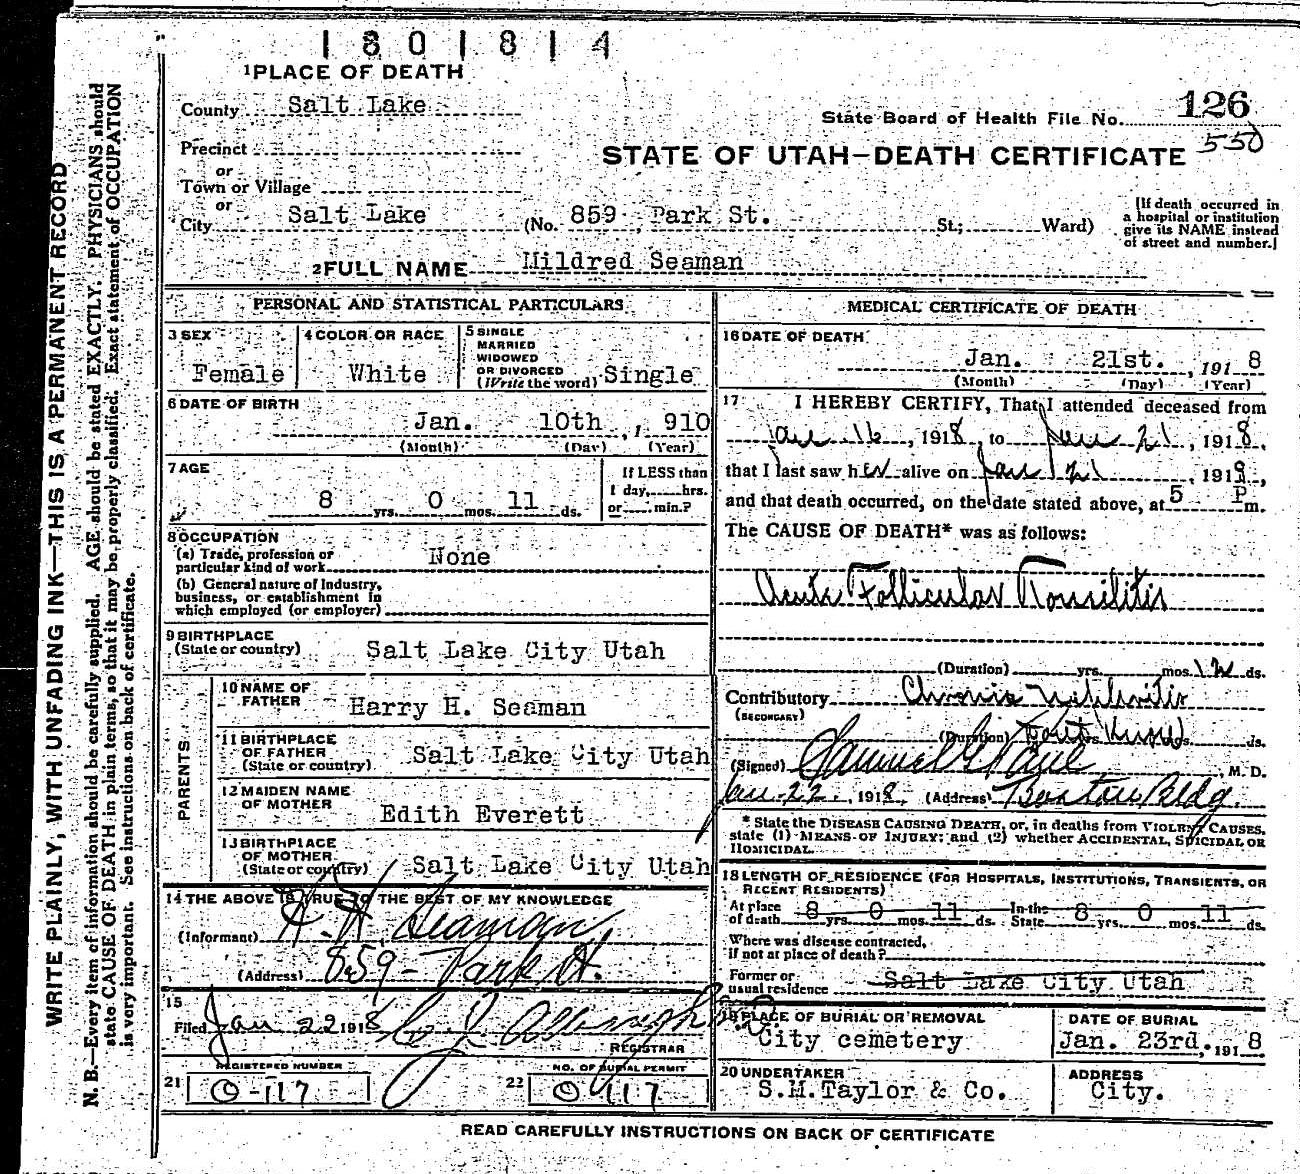 1801814
1 PLACE OF DEATH
County Salt Lake
State Board of Health File No. 126
550
Precinct
or
Town or Village
or
City Salt Lake (No. 859 Park St. St.; Ward)
[If death occurred in
a hospital or institution
give its NAME instead
of street and number.]
STATE OF UTAH—DEATH CERTIFICATE
2 FULL NAME Mildred Seaman
PERSONAL AND STATISTICAL PARTICULARS
3 SEX
Female
4 COLOR OR RACE
White
5 SINGLE
MARRIED
WIDOWED
OR DIVORCED
(Write the word) Single
6 DATE OF BIRTH
Jan. 10th , 1 910
(Month) (Day) (Year)
7 AGE
8 yrs. 0 mos. 11 ds.
If LESS than
1 day, hrs.
or min.?
8 OCCUPATION
(a) Trade, profession or
particular kind of work None
(b) General nature of Industry,
business, or establishment in
which employed (or employer)
9 BIRTHPLACE
(State or country) Salt Lake City Utah
PARENTS
10 NAME OF
FATHER Harry H. Seaman
11 BIRTHPLACE
OF FATHER
(State or country) Salt Lake City Utah
12 MAIDEN NAME
OF MOTHER Edith Everett
13 BIRTHPLACE
OF MOTHER
(State or country) Salt Lake City Utah
14 THE ABOVE IS TRUE TO THE BEST OF MY KNOWLEDGE
(Informant) H. H. Seaman
(Address) 859 - Park St.
15
Filed Jan 22 1918
REGISTRAR
REGISTERED NUMBER
21 O-117
NO. OF BURIAL PERMIT
22 O 117
MEDICAL CERTIFICATE OF DEATH
16 DATE OF DEATH
Jan. 21st. , 191 8
(Month) (Day) (Year)
17 I HEREBY CERTIFY, That I attended deceased from
Jan 16 , 1918, to Jan 21 , 1918,
that I last saw her alive on Jan 21 , 1918,
and that death occurred, on the date stated above, at 5 P m.
The CAUSE OF DEATH* was as follows:
Acute Follicular Tonsilitis
(Duration) yrs. mos. 12 ds.
Contributory Chronic Nephritis
(SECONDARY)
(Duration) Don't Know ds.
(Signed) Samuel G. Paul , M. D.
Jan. 22 , 1918 (Address) Boston Bldg.
* State the DISEASE CAUSING DEATH, or, in deaths from VIOLENT CAUSES,
state (1) MEANS OF INJURY; and (2) whether ACCIDENTAL, SUICIDAL OR
HOMICIDAL.
18 LENGTH OF RESIDENCE (FOR HOSPITALS, INSTITUTIONS, TRANSIENTS, OR
RECENT RESIDENTS)
At place
of death 8 yrs. 0 mos. 11 ds. In the
State 8 yrs. 0 mos. 11 ds.
Where was disease contracted,
if not at place of death?
Former or
usual residence Salt Lake City Utah
19 PLACE OF BURIAL OR REMOVAL
City cemetery
DATE OF BURIAL
Jan. 23rd. , 191 8
20 UNDERTAKER
S.M. Taylor & Co.
ADDRESS
City.
READ CAREFULLY INSTRUCTIONS ON BACK OF CERTIFICATE
WRITE PLAINLY, WITH UNFADING INK—THIS IS A PERMANENT RECORD
N. B.—Every item of information should be carefully supplied. AGE should be stated EXACTLY. PHYSICIANS should
state CAUSE OF DEATH in plain terms, so that it may be properly classified. Exact statement of OCCUPATION
is very important. See instructions on back of certificate.